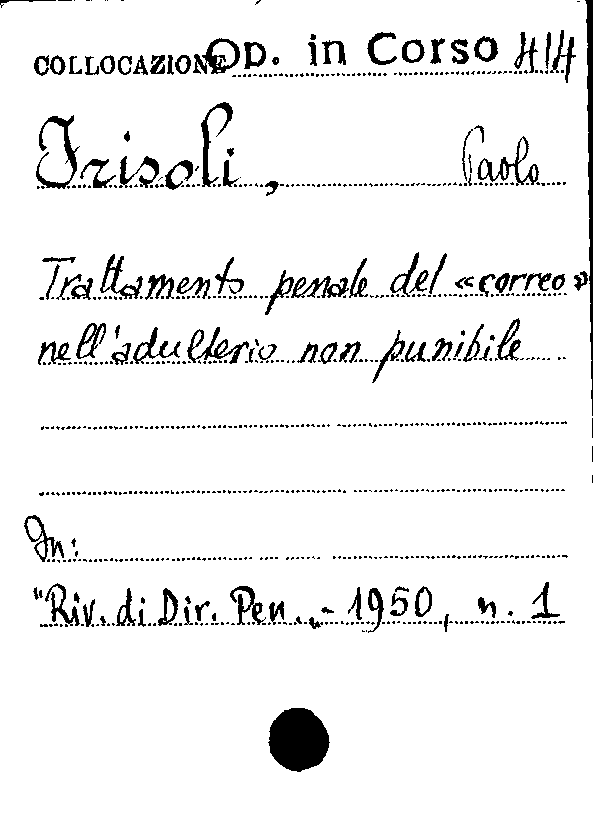 COLLOCAZIONE Op. in Corso 414
Frisoli, Paolo
Trattamento penale del «correo»
nell'adulterio non punibile
In:
"Riv. di Dir. Pen.„ - 1950, n. 1